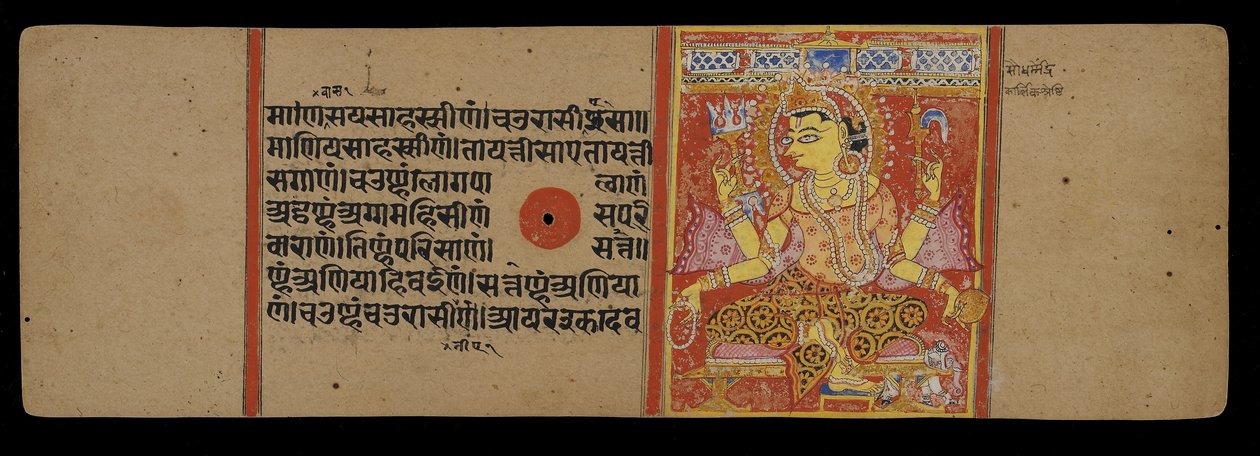 वास
माणासयसाहस्सीणं।चउरासीईएसा॥
माणियसाहस्सीणं।तायत्तीसाएतायत्ती
सगाणं।चउण्हंलोगपा लाणं
अट्ठण्हंअग्गमहिसीणं सपरि
वाराणं।तिण्हंपरिसाणं। सत्त॥
ण्हंअणियाहिवईणं।सत्तण्हंअणिया
णं।चउण्हंचउरासीणं।आयरक्खदेव
सौधर्मेंद्र
कार्तिकश्रेष्ठि